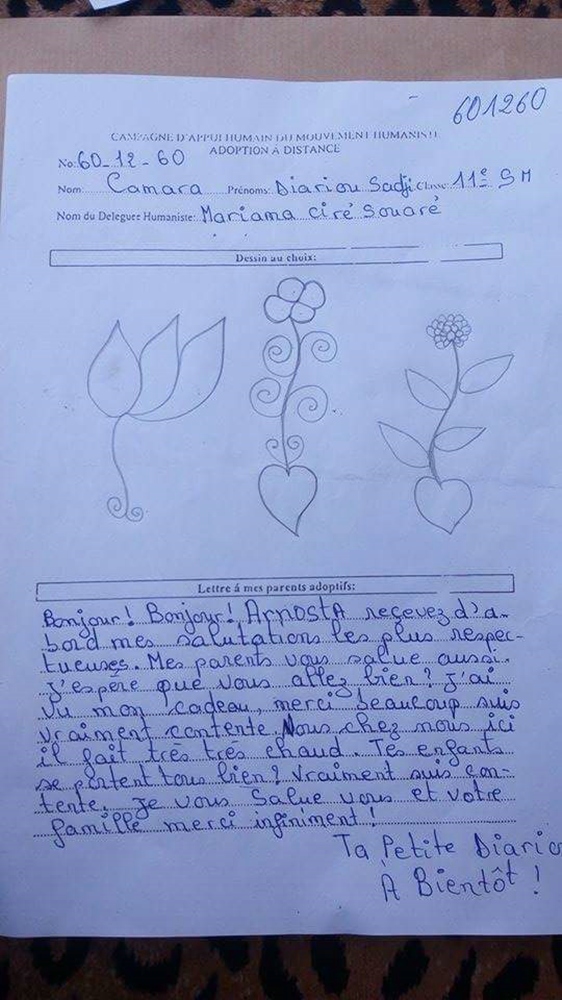 601260
CAMPAGNE D'APPUI HUMAIN DU MOUVEMENT HUMANISTE
ADOPTION À DISTANCE
No: 60-12-60
Nom: Camara Prénoms: Diariou Sadji Classe: 11e SM
Nom du Deleguee Humaniste: Mariama ciré Souaré
Dessin au choix:
Lettre á mes parents adoptifs:
Bonjour! Bonjour! ArnostA reçevez d'a-
bord mes salutations les plus respec-
tueuses. Mes parents vous salue aussi.
J'espère que vous allez bien? J'ai
vu mon cadeau, merci beaucoup suis
vraiment contente. Nous chez nous ici
il fait très très chaud. Tes enfants
se portent tous bien? Vraiment suis con-
tente. Je vous salue vous et votre
famille merci infiniment!
Ta Petite Diario
À Bientôt!